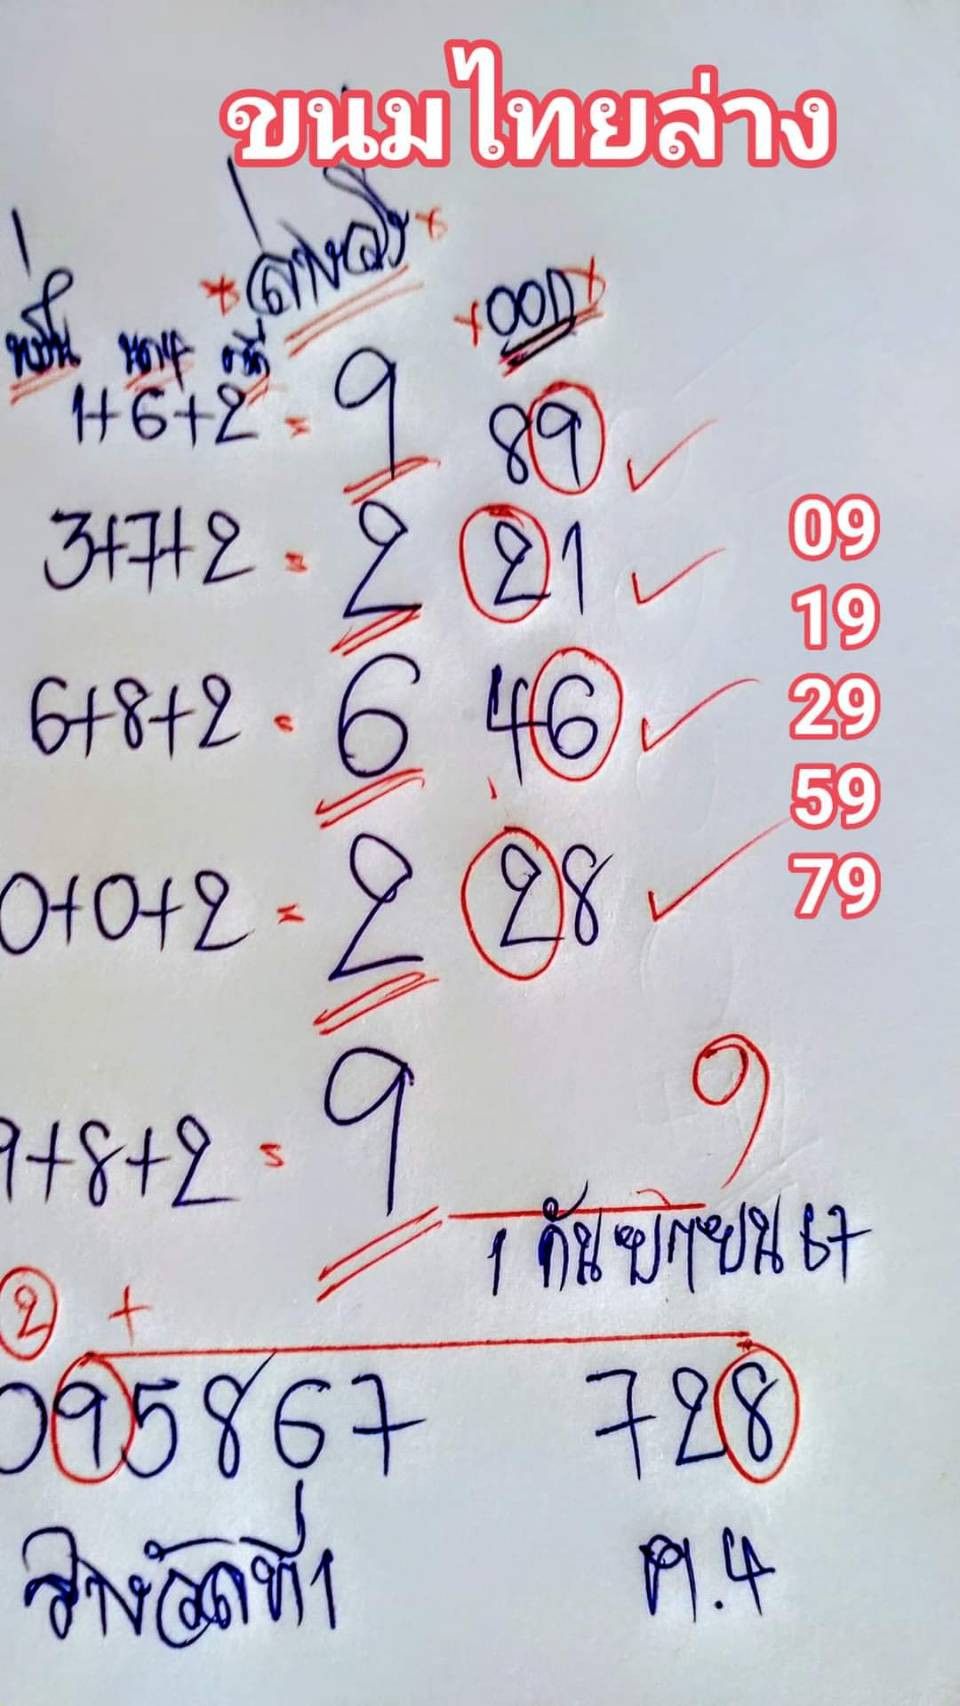 ขนมไทยล่าง
ล่างวิ่ง
ออก
หมื่น หาง คงที่
1+6+2 = 9 89
3+7+2 = 2 21
09
19
6+8+2 = 6 46
29
59
0+0+2 = 2 28
79
9+8+2 = 9 9
1 กันยายน 67
2 +
095867 728
รางวัลที่1 ต.4